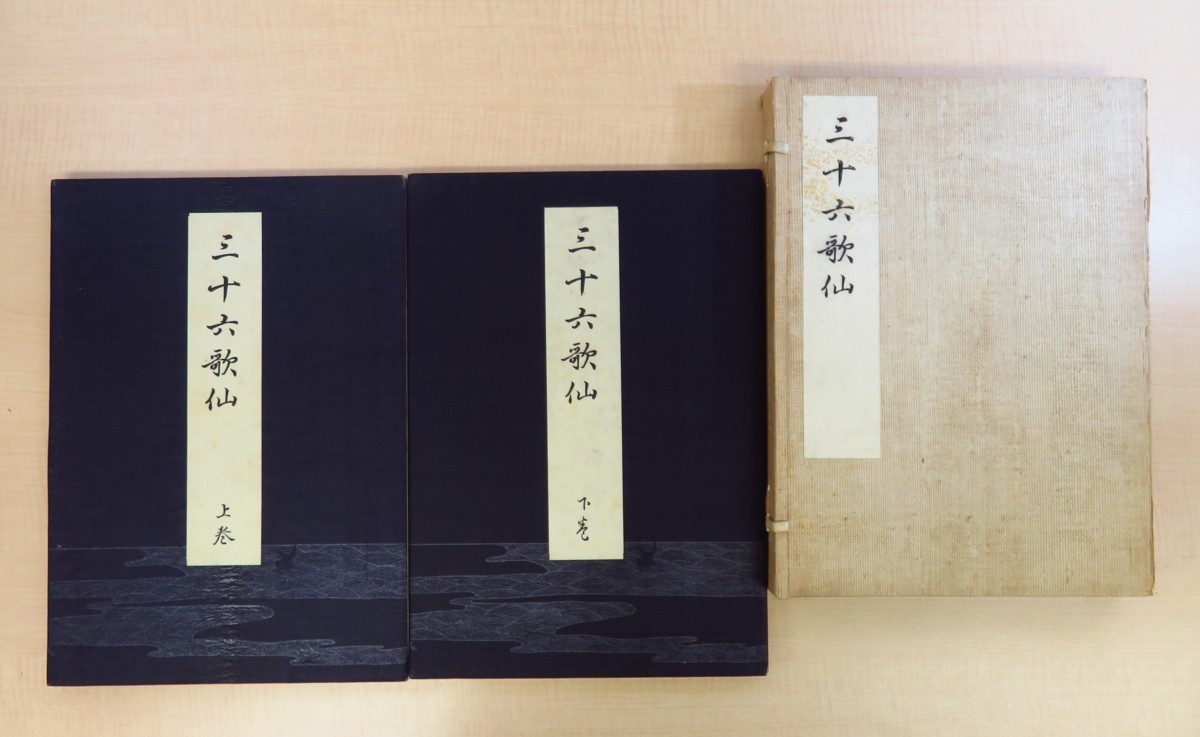 三十六歌仙
上巻
三十六歌仙
下巻
三十六歌仙